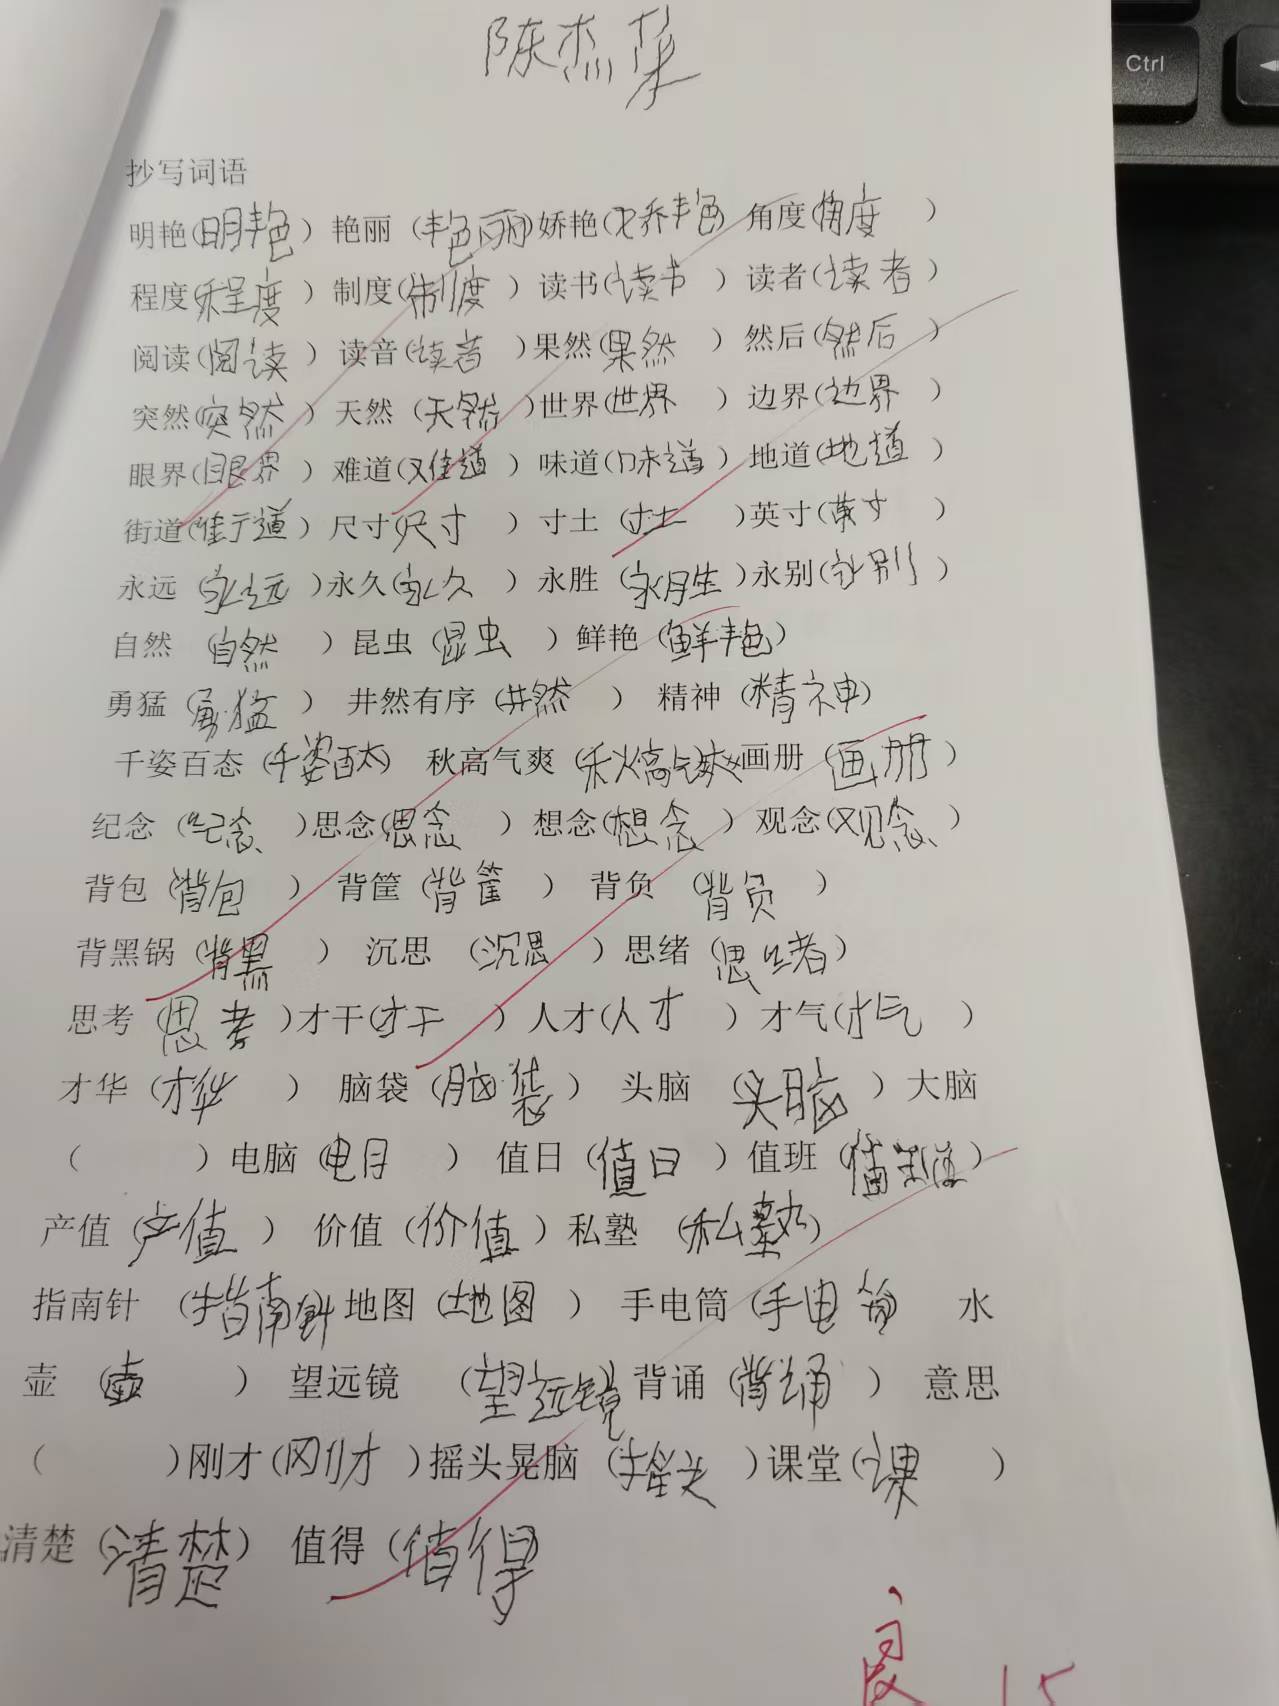 陈杰荣
Ctrl
抄写词语
明艳(明艳) 艳丽 (艳丽)娇艳(娇艳) 角度(角度 )
程度(程度 ) 制度(制度 ) 读书(读书 ) 读者(读者 )
阅读(阅读 ) 读音(读音 )果然(果然 ) 然后(然后 )
突然(突然 ) 天然 (天然 )世界(世界 ) 边界(边界 )
眼界(眼界 ) 难道(难道 ) 味道(味道) 地道(地道 )
街道(街道 ) 尺寸(尺寸 ) 寸土 (寸土 )英寸(英寸 )
永远 (永远 )永久(永久 ) 永胜 (永胜 )永别(永别 )
自然 (自然 ) 昆虫 (昆虫 )鲜艳 (鲜艳)
勇猛 (勇猛 ) 井然有序 (井然 ) 精神 (精神)
千姿百态 (千姿百太) 秋高气爽 (秋高气爽)画册 (画册 )
纪念 (纪念 )思念(思念 ) 想念(想念 ) 观念(观念 )
背包 (背包 ) 背筐 (背筐 ) 背负 (背负 )
背黑锅 (背黑 ) 沉思 (沉思 )思绪 (思绪)
思考 (思考 )才干(才干 )人才(人才 ) 才气(才气 )
才华 (才华 ) 脑袋 (脑袋 ) 头脑 (头脑 )大脑
( )电脑 (电月 ) 值日 (值日 )值班 (值班)
产值 (产值 ) 价值 (价值 )私塾 (私塾)
指南针 (指南针 地图 (地图 ) 手电筒 (手电筒 水
壶 (壶 ) 望远镜 (望远镜 背诵 (背诵 ) 意思
( )刚才(刚才 )摇头晃脑 (摇头 )课堂(课 )
清楚 (清楚) 值得 (值得)
良 15